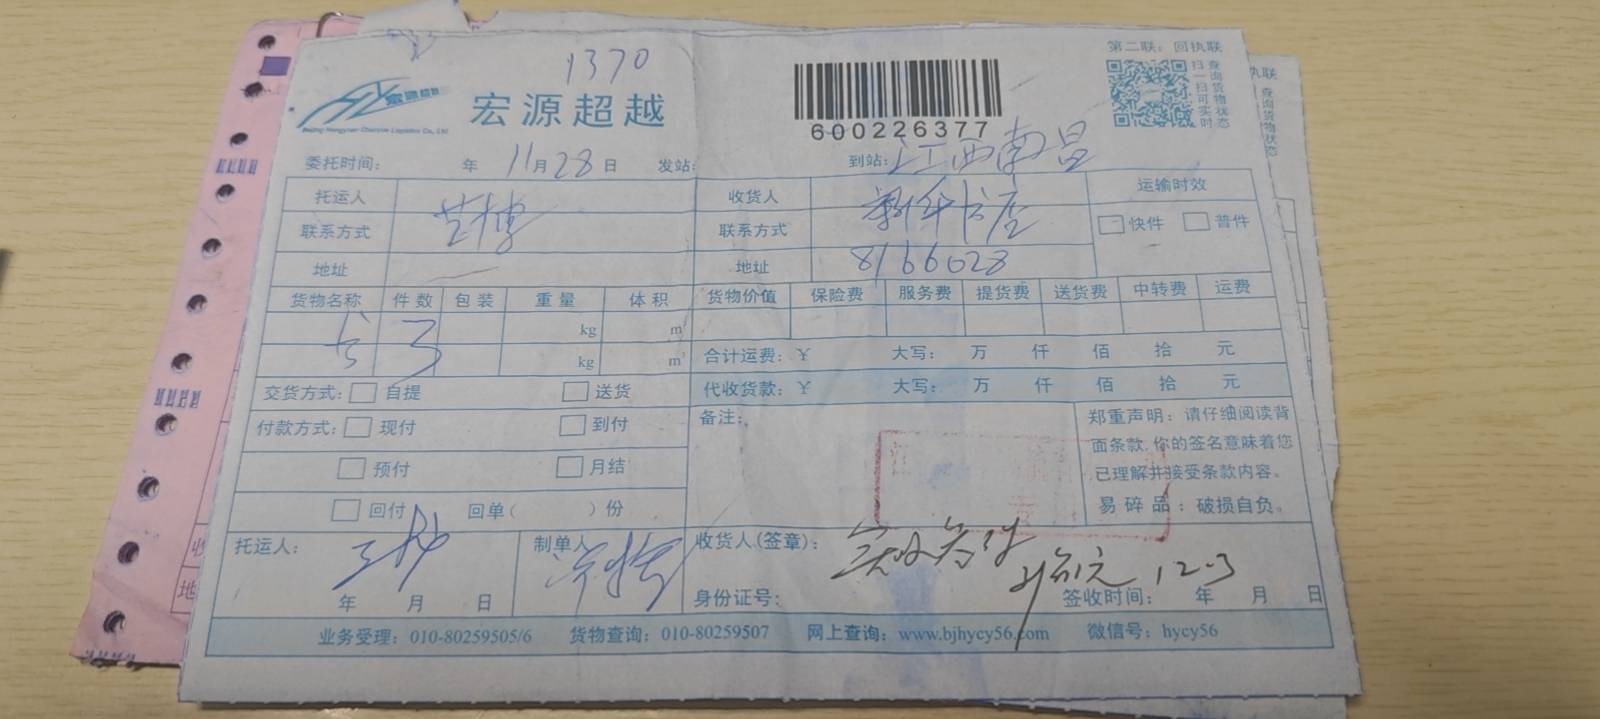 第二联：回执联
1370
宏源超越
宏源超越
Beijing Hongyuan Chaoyue Logistics Co., Ltd
600226377
查询货物状态
扫一扫可实时
委托时间： 年 11月28日 发站： 到站：江西南昌
托运人 收货人 新华书店 运输时效
联系方式 联系方式 快件 普件
地址 地址 8166028
货物名称 件数 包装 重量 体积 货物价值 保险费 服务费 提货费 送货费 中转费 运费
书 3 kg m³
kg m³
合计运费：￥ 大写： 万 仟 佰 拾 元
代收货款：￥ 大写： 万 仟 佰 拾 元
交货方式： 自提 送货
付款方式： 现付 到付
预付 月结
回付 回单（ ）份
备注：
郑重声明：请仔细阅读背
面条款，你的签名意味着您
已理解并接受条款内容。
易碎品：破损自负。
托运人： 制单人 收货人（签章）：
12.3
年 月 日 身份证号： 签收时间： 年 月 日
业务受理：010-80259505/6 货物查询：010-80259507 网上查询：www.bjhycy56.com 微信号：hycy56
执联
查询货物状态